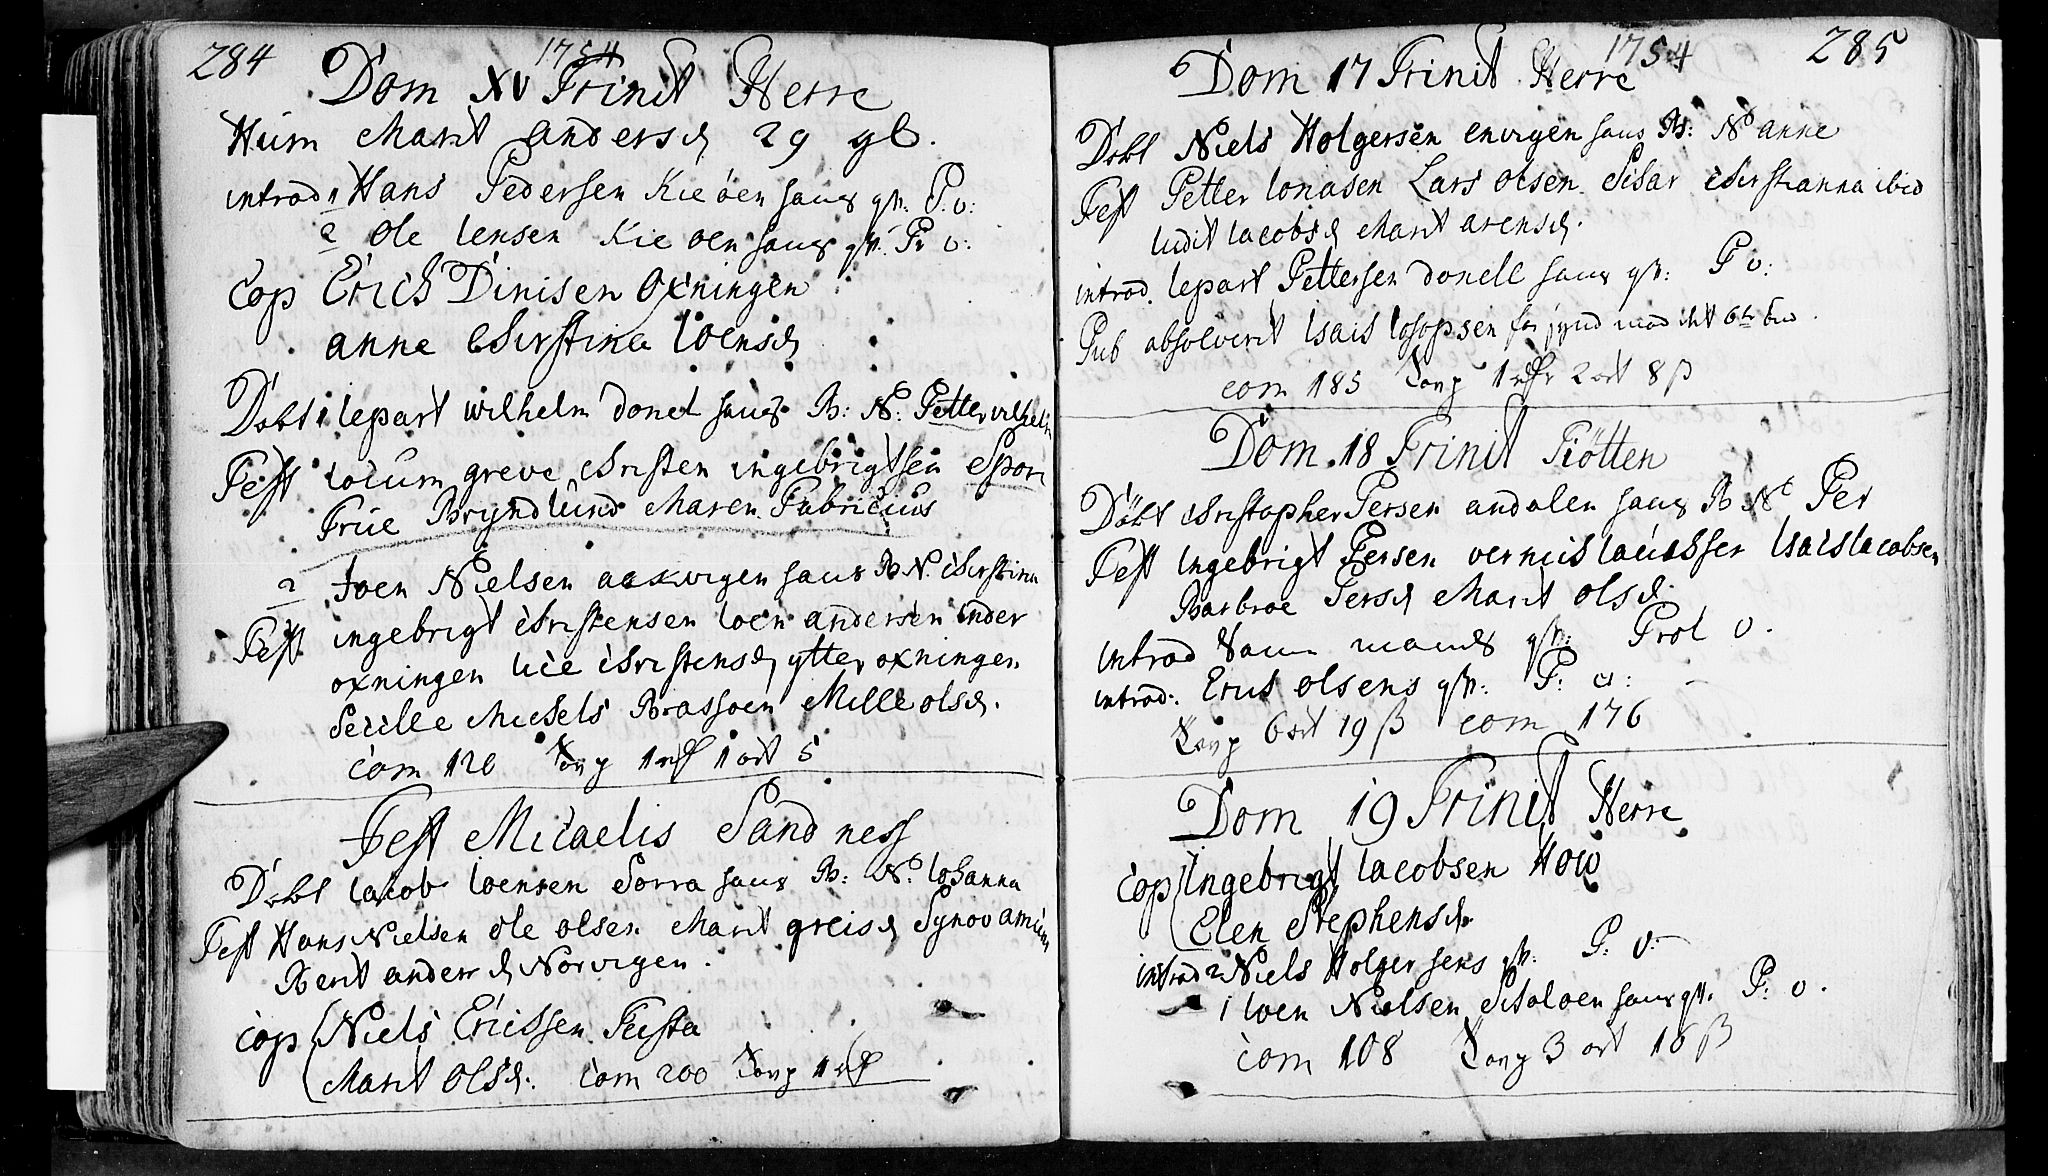 284
1754
Dom XV Trinit Herre
Hüm Marit andersd 29 gl.
introd 1 Hans Pedersen Kieöen hans qv: P: v:
2 Ole Iensen Kieöen hans qv: Pr v:
Cop Erich Dinisen Oxningen
anne Christine Ioensd
Døbt 1 lepart wilhelm donet hans B: N: Petter vilhelm
Test locum greve Christen ingebrigtsen Spon
Frue Bryndlund Maren Fabricius
2 Joen Nielsen aaswigen hans B N. Christina
Test. ingebrigt Christensen Ioen andersen inder
oxningen lice Christensd ytter oxningen
Sicille Michels Brassoen Mille olsd.
Com 120 1 ort 5
Fest Micaelis Sandness
Døbt Iacob Ioensen Sorra hans B: N: Iohanna
Test Hans Nielsen Ole olsen Marit greisd Synov
Berit andersd Norvigen.
Cop Niels Ericssen Fusta
Marit Olsd. Com 200
285
1754
Dom 17 Trinit Herre
Døbt Niels Holgersen envigen hans B: N anne
Test Petter Ionasen Lars olsen Christianna ibid
Iudit Iacobsd Marit arensd.
introd. lepart Pettersen donell hans qv: P v:
Pub absolverit Isais Iosopsen
com 185 2 ort 8 ß
Dom. 18 Trinit Tiötten
Döbt Christopher Persen andalen hans B N Per
Test Ingebrigt Persen Isais Iacobsen
Barbroe Persd Marit olsd.
Introd mands qv: Prol v.
introd: olsens qv: P: v:
6 ort 19 ß com 176
Dom 19 Trinit Herre
Cop Ingebrigt Iacobsen How
Elen Stephensd
introd 2 Niels Holgersens qv: P: v:
1 Ioen Nielsen hans qv. P: v.
Com 108 3 ort 16 ß